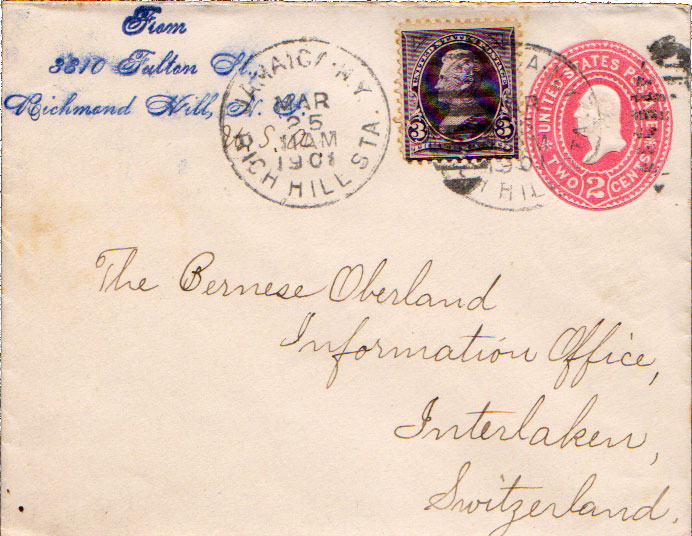 From
3810 Fulton St.,
Richmond Hill, N. Y.
U. S. A.
JAMAICA, N.Y.
MAR
25
11AM
1901
RICH HILL STA.
UNITED STATES POSTAGE
3 3
UNITED STATES POSTAGE
TWO 2 CENTS
1901
The Bernese Oberland
Information Office,
Interlaken,
Switzerland.